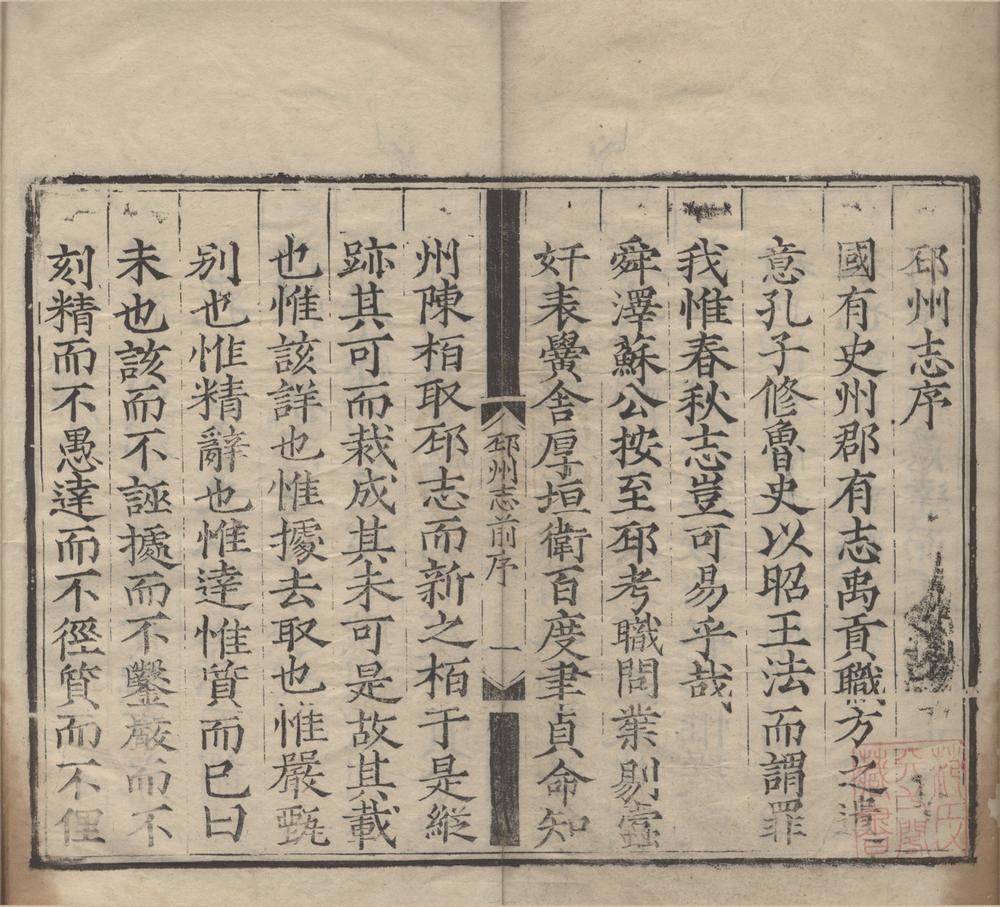 邳州志序
國有史州郡有志禹貢職方之遺
意孔子修魯史以昭王法而謂罪
我惟春秋志豈可易乎哉
舜澤蘇公按至邳考職問業剔蠹
奸表黌舍厚垣衛百度聿貞命知
邳州志前序
一
州陳栢取邳志而新之栢于是縱
跡其可而栽成其未可是故其載
也惟該詳也惟據去取也惟嚴甄
别也惟精辭也惟達惟質而已曰
未也該而不誣據而不鑿嚴而不
刻精而不愚達而不徑質而不俚